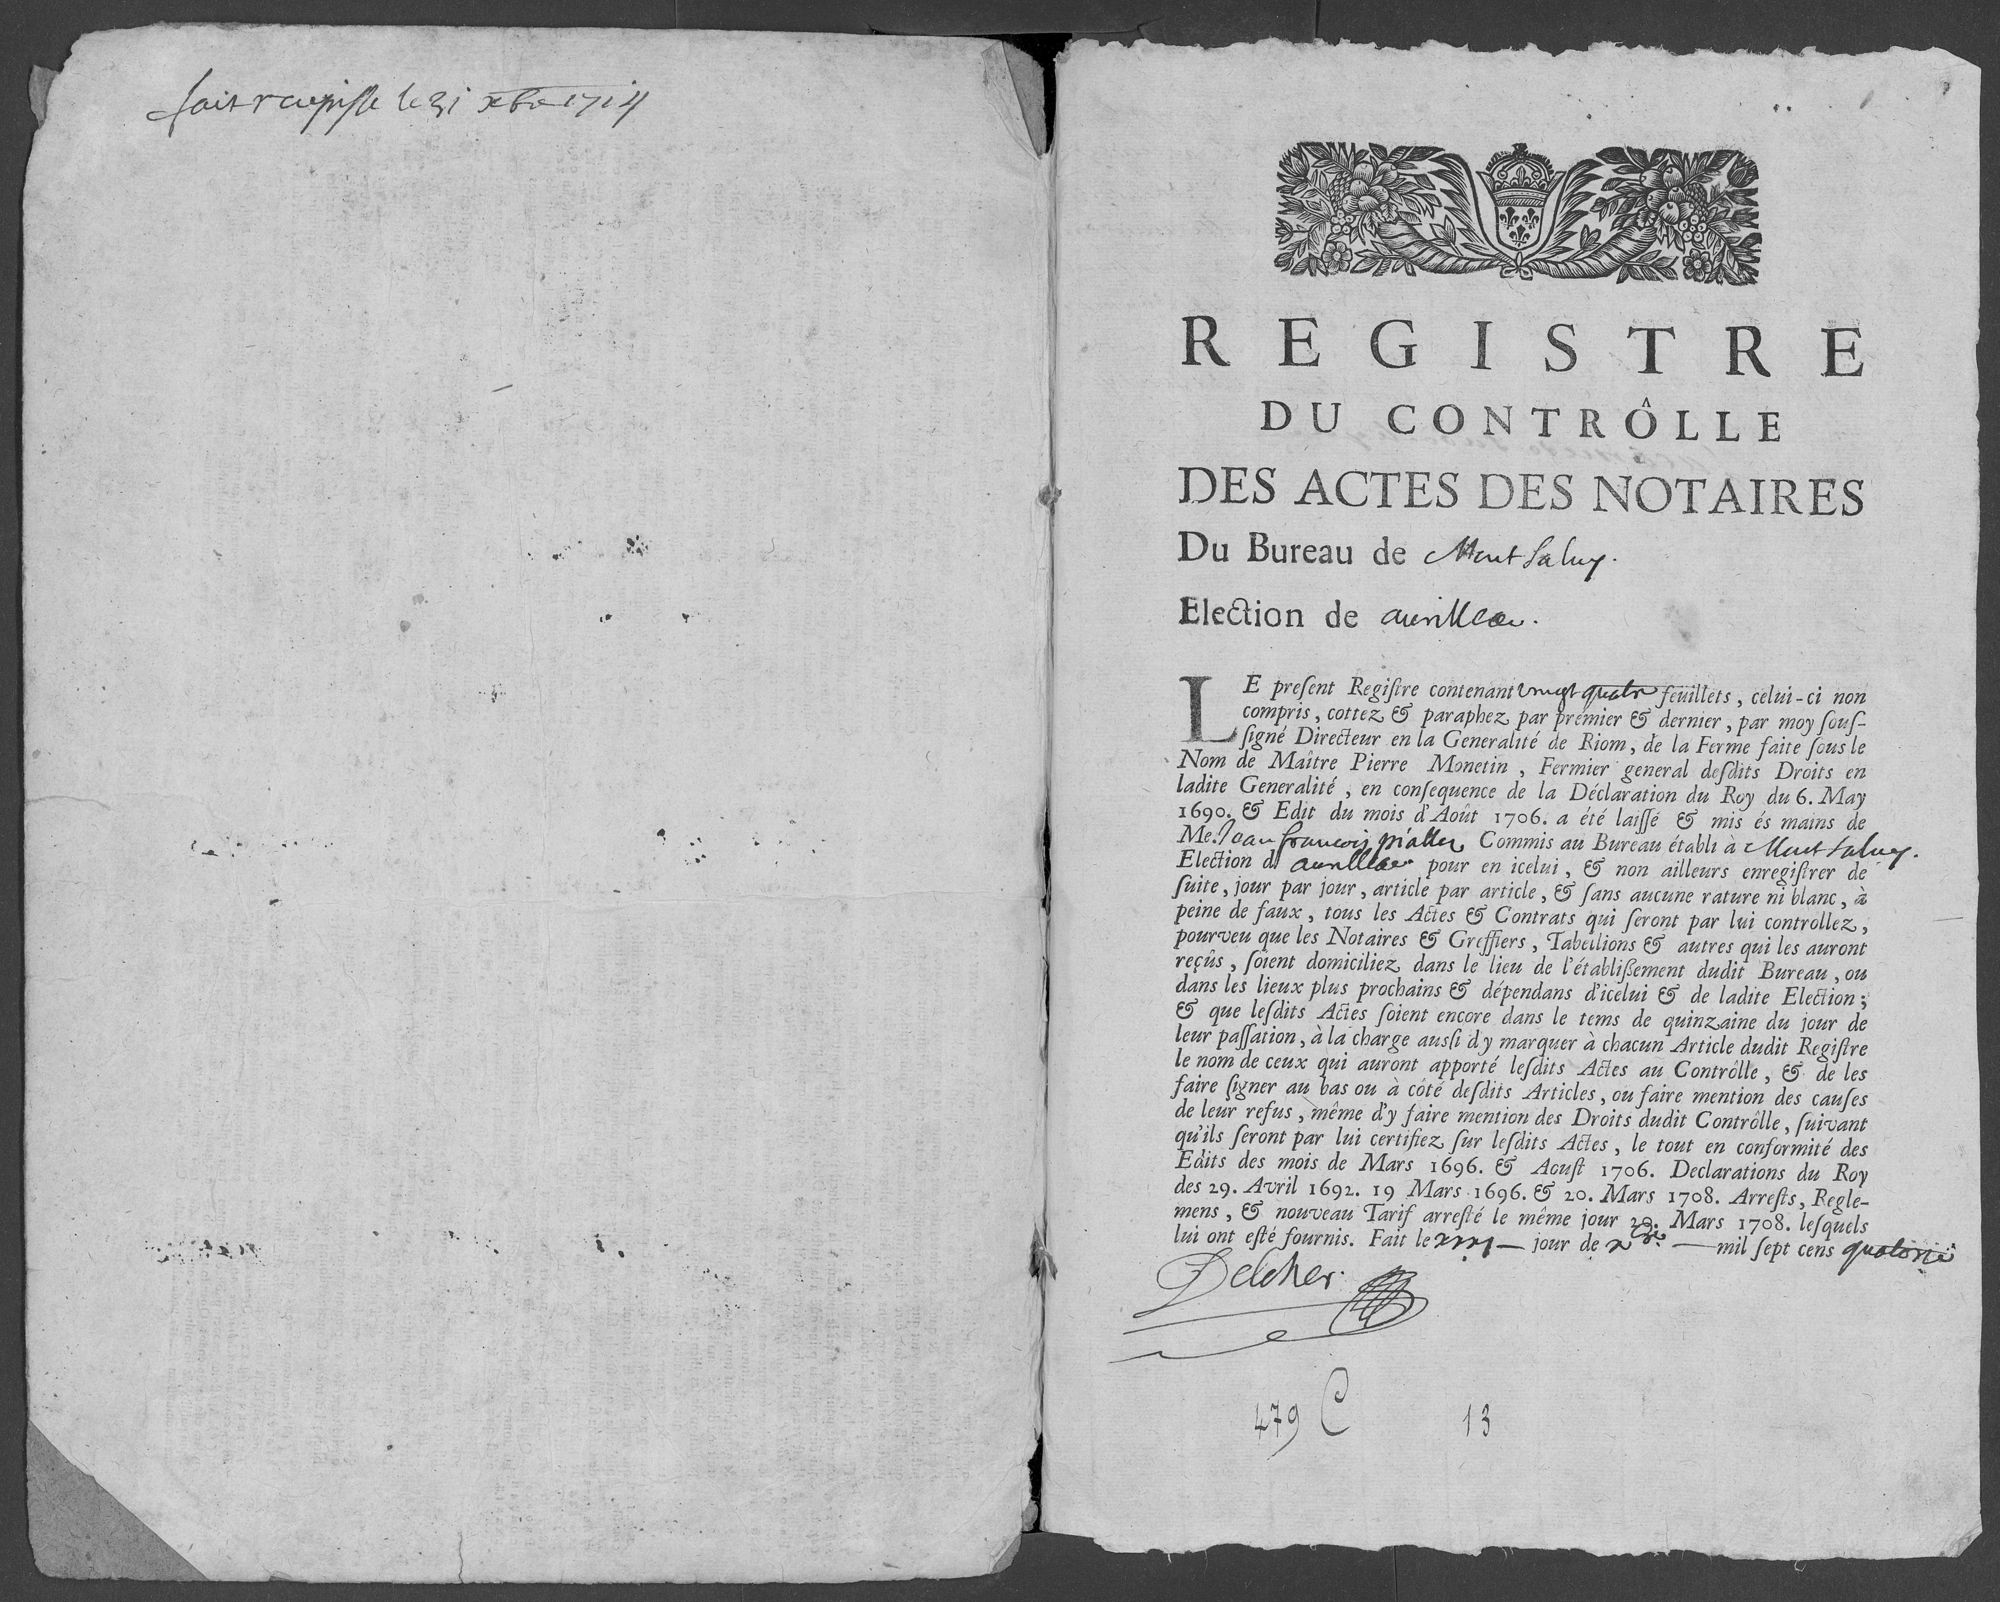 fait r le 31 xbre 1714
REGISTRE
DU CONTRÔLLE
DES ACTES DES NOTAIRES
Du Bureau de Montsalvy.
Election de aurillac.
LE preſent Regiſtre contenant vingt quatre feüillets, celui-ci non
compris, cottez & paraphez par premier & dernier, par moy ſouſ-
ſigné Directeur en la Generalité de Riom, de la Ferme faite ſous le
Nom de Maître Pierre Monetin, Fermier general deſdits Droits en
ladite Generalité, en conſequence de la Déclaration du Roy du 6. May
1690. & Edit du mois d'Août 1706. a été laiſſé & mis és mains de
Me. Jean francois Commis au Bureau établi à Montsalvy.
Election d' aurillac pour en icelui, & non ailleurs enregiſtrer de
ſuite, jour par jour, article par article, & ſans aucune rature ni blanc, à
peine de faux, tous les Actes & Contrats qui ſeront par lui controllez,
pourveu que les Notaires & Greffiers, Tabellions & autres qui les auront
reçûs, ſoient domiciliez dans le lieu de l'établißement dudit Bureau, ou
dans les lieux plus prochains & dépendans d'icelui & de ladite Election;
& que leſdits Actes ſoient encore dans le tems de quinzaine du jour de
leur paſſation, à la charge auſſi d'y marquer à chacun Article dudit Regiſtre
le nom de ceux qui auront apporté leſdits Actes au Contrôlle, & de les
faire ſigner au bas ou à côté deſdits Articles, ou faire mention des cauſes
de leur refus, même d'y faire mention des Droits dudit Contrôlle, ſuivant
qu'ils ſeront par lui certifiez ſur leſdits Actes, le tout en conformité des
Edits des mois de Mars 1696. & Aouſt 1706. Declarations du Roy
des 29. Avril 1692. 19 Mars 1696. & 20. Mars 1708. Arreſts, Regle-
mens, & nouveau Tarif arreſté le même jour 20. Mars 1708. leſquels
lui ont eſté fournis. Fait le jour de xbre mil ſept cens quatorze
Delcher
479 C 13